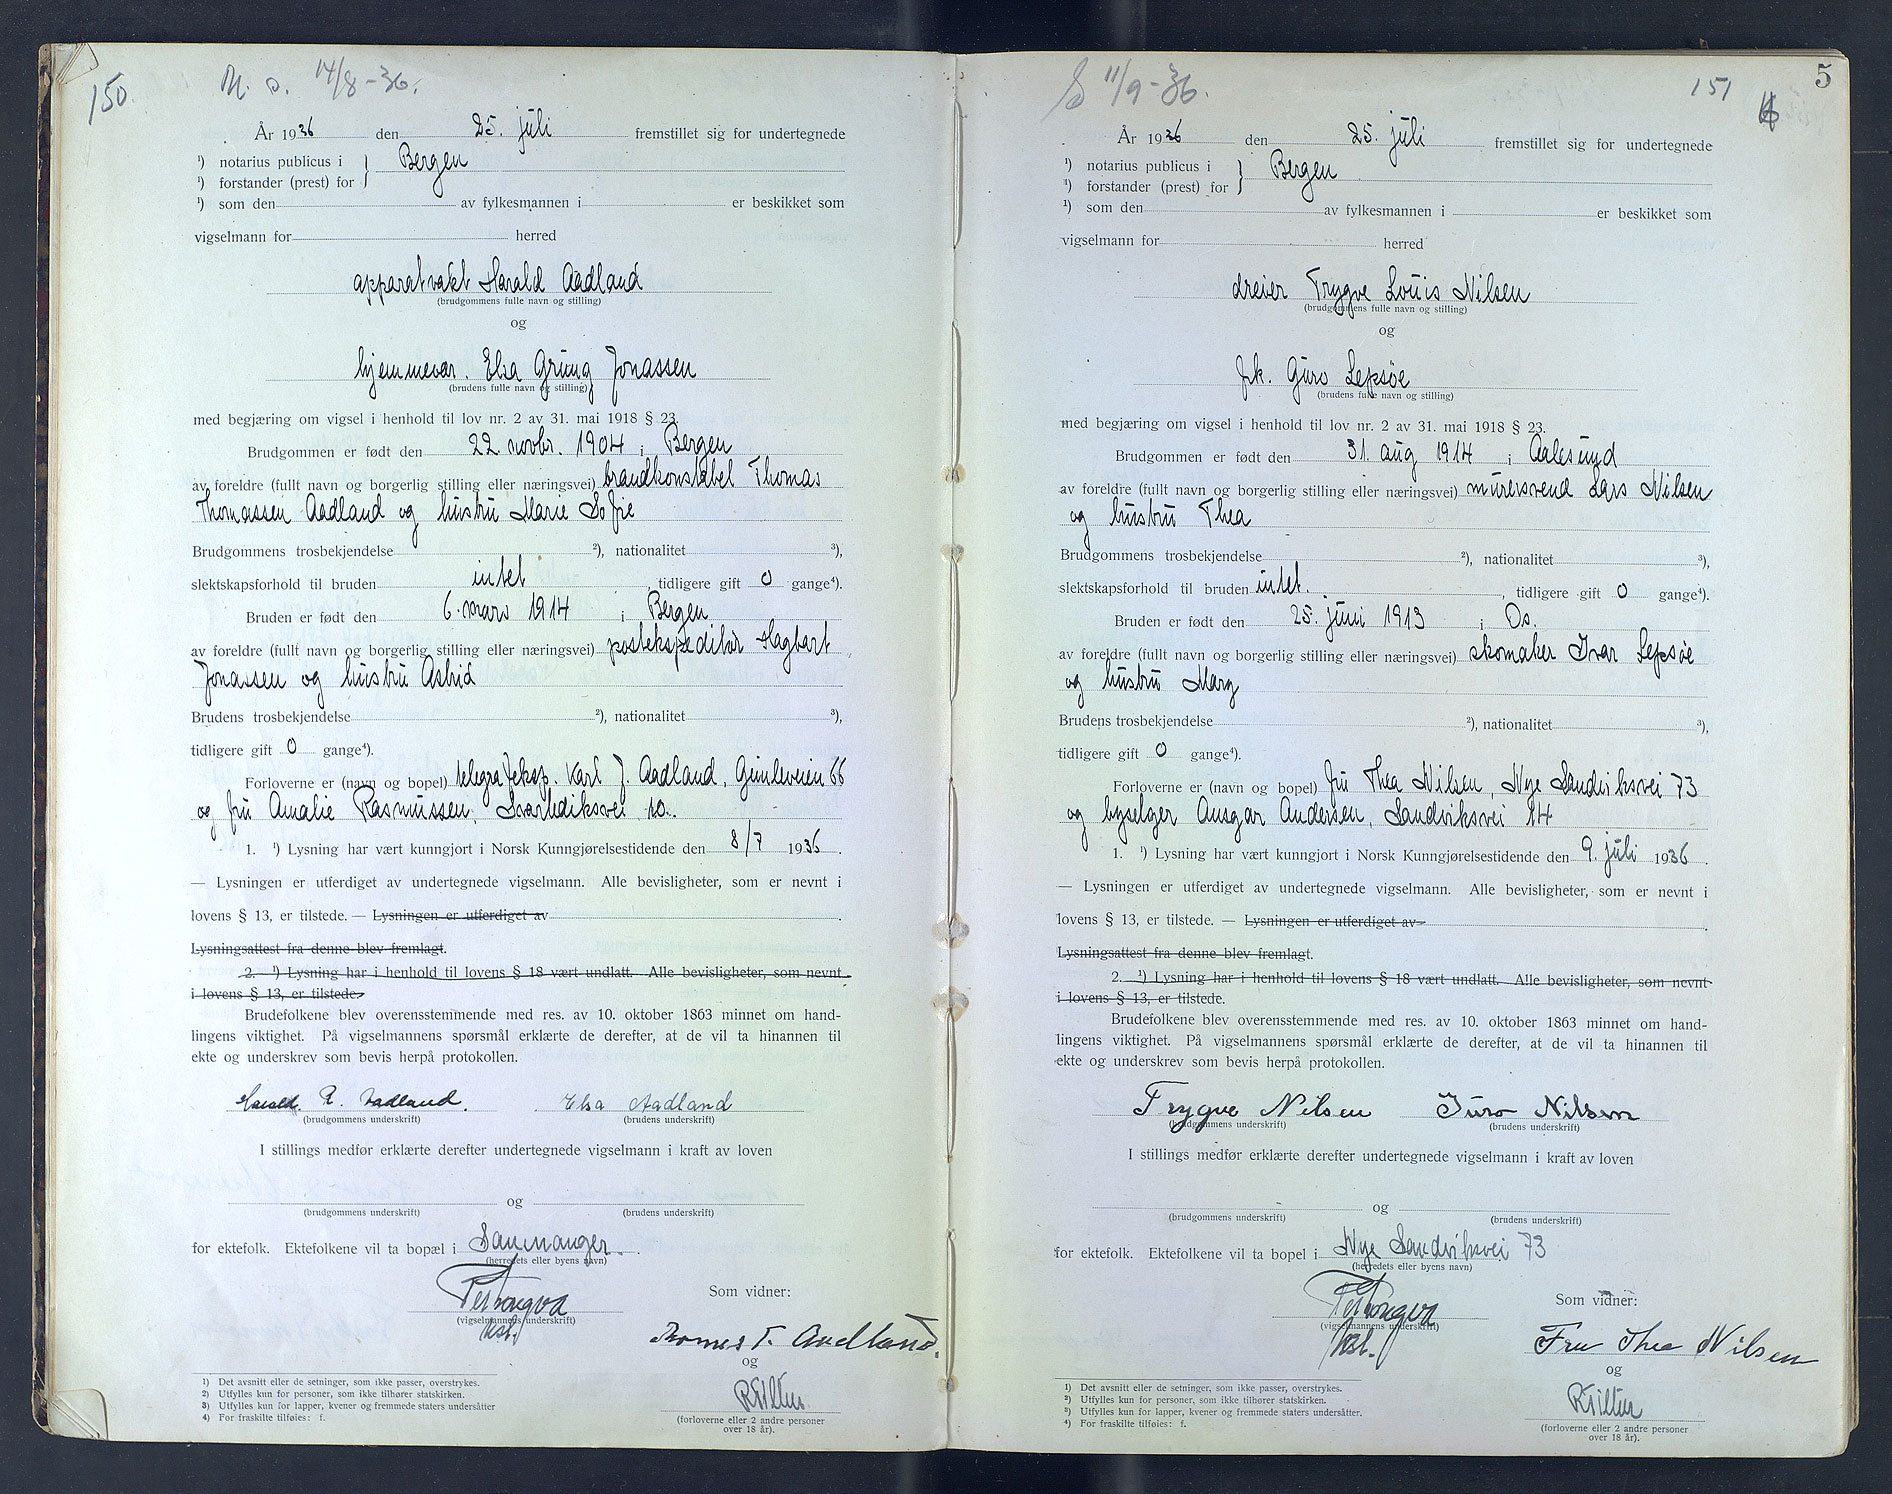 150. N. s. 14/8-36.
År 1936 den 25. juli fremstillet sig for undertegnede
¹) notarius publicus i } Bergen
¹) forstander (prest) for
¹) som den av fylkesmannen i er beskikket som
vigselmann for herred
apparatvakt Harald Aadland
(brudgommens fulle navn og stilling)
og
hjemmevær. Elsa Grung Jonassen
(brudens fulle navn og stilling)
med begjæring om vigsel i henhold til lov nr. 2 av 31. mai 1918 § 23.
Brudgommen er født den 22 novbr. 1904 i Bergen
av foreldre (fullt navn og borgerlig stilling eller næringsvei) brandkonstabel Thomas
Thomassen Aadland og hustru Marie Sofie
Brudgommens trosbekjendelse ²), nationalitet ³),
slektskapsforhold til bruden intet , tidligere gift 0 gange⁴).
Bruden er født den 6. mars 1914 i Bergen
av foreldre (fullt navn og borgerlig stilling eller næringsvei) postekspeditør Hagbart
Jonassen og hustru Astrid
Brudens trosbekjendelse ²), nationalitet ³),
tidligere gift 0 gange⁴).
Forloverne er (navn og bopel) telegrafeksp. Karl J. Aadland, Gimleveien 66
og fru Amalie Rasmussen, Svartediksvei 10.
1. ¹) Lysning har vært kunngjort i Norsk Kunngjørelsestidende den 8/7 1936.
— Lysningen er utferdiget av undertegnede vigselmann. Alle bevisligheter, som er nevnt i
lovens § 13, er tilstede. — Lysningen er utferdiget av
Lysningsattest fra denne blev fremlagt.
2. ¹) Lysning har i henhold til lovens § 18 vært undlatt. Alle bevisligheter, som nevnt
i lovens § 13, er tilstede.
Brudefolkene blev overensstemmende med res. av 10. oktober 1863 minnet om hand-
lingens viktighet. På vigselmannens spørsmål erklærte de derefter, at de vil ta hinannen til
ekte og underskrev som bevis herpå protokollen.
Harald. R. Aadland. Elsa Aadland
(brudgommens underskrift) (brudens underskrift)
I stillings medfør erklærte derefter undertegnede vigselmann i kraft av loven
og
(brudgommens underskrift) (brudens underskrift)
for ektefolk. Ektefolkene vil ta bopæl i Samnanger.
(herredets eller byens navn)
Som vidner:
(vigselmannens underskrift)
Thomas T. Aadland.
og
(forloverne eller 2 andre personer
over 18 år).
1) Det avsnitt eller de setninger, som ikke passer, overstrykes.
2) Utfylles kun for personer, som ikke tilhører statskirken.
3) Utfylles kun for lapper, kvener og fremmede staters undersåtter
4) For fraskilte tilføies: f.
11/9-36. 151 5
År 1936 den 25. juli fremstillet sig for undertegnede
¹) notarius publicus i } Bergen
¹) forstander (prest) for
¹) som den av fylkesmannen i er beskikket som
vigselmann for herred
dreier Trygve Louis Nilsen
(brudgommens fulle navn og stilling)
og
frk. Guro Lepsøe
(brudens fulle navn og stilling)
med begjæring om vigsel i henhold til lov nr. 2 av 31. mai 1918 § 23.
Brudgommen er født den 31. aug 1914 i Aalesund
av foreldre (fullt navn og borgerlig stilling eller næringsvei) mursvend Lars Nilsen
og hustru Thea
Brudgommens trosbekjendelse ²), nationalitet ³),
slektskapsforhold til bruden intet. , tidligere gift 0 gange⁴).
Bruden er født den 25. juni 1913 i Os.
av foreldre (fullt navn og borgerlig stilling eller næringsvei) skomaker Ivar Lepsøe
og hustru Marg
Brudens trosbekjendelse ²), nationalitet ³),
tidligere gift 0 gange⁴).
Forloverne er (navn og bopel) fru Thea Nilsen, Nye Sandviksvei 73
og byselger Ansgar Andersen, Sandviksvei 14
1. ¹) Lysning har vært kunngjort i Norsk Kunngjørelsestidende den 9. juli 1936.
— Lysningen er utferdiget av undertegnede vigselmann. Alle bevisligheter, som er nevnt i
lovens § 13, er tilstede. — Lysningen er utferdiget av
Lysningsattest fra denne blev fremlagt.
2. ¹) Lysning har i henhold til lovens § 18 vært undlatt. Alle bevisligheter, som nevnt
i lovens § 13, er tilstede.
Brudefolkene blev overensstemmende med res. av 10. oktober 1863 minnet om hand-
lingens viktighet. På vigselmannens spørsmål erklærte de derefter, at de vil ta hinannen til
ekte og underskrev som bevis herpå protokollen.
Trygve Nilsen Guro Nilsen
(brudgommens underskrift) (brudens underskrift)
I stillings medfør erklærte derefter undertegnede vigselmann i kraft av loven
og
(brudgommens underskrift) (brudens underskrift)
for ektefolk. Ektefolkene vil ta bopel i Nye Sandviksvei 73
(herredets eller byens navn)
Som vidner:
(vigselmannens underskrift)
Fru Thea Nilsen
og
(forloverne eller 2 andre personer
over 18 år).
1) Det avsnitt eller de setninger, som ikke passer, overstrykes.
2) Utfylles kun for personer, som ikke tilhører statskirken.
3) Utfylles kun for lapper, kvener og fremmede staters undersåtter.
4) For fraskilte tilføies: f.